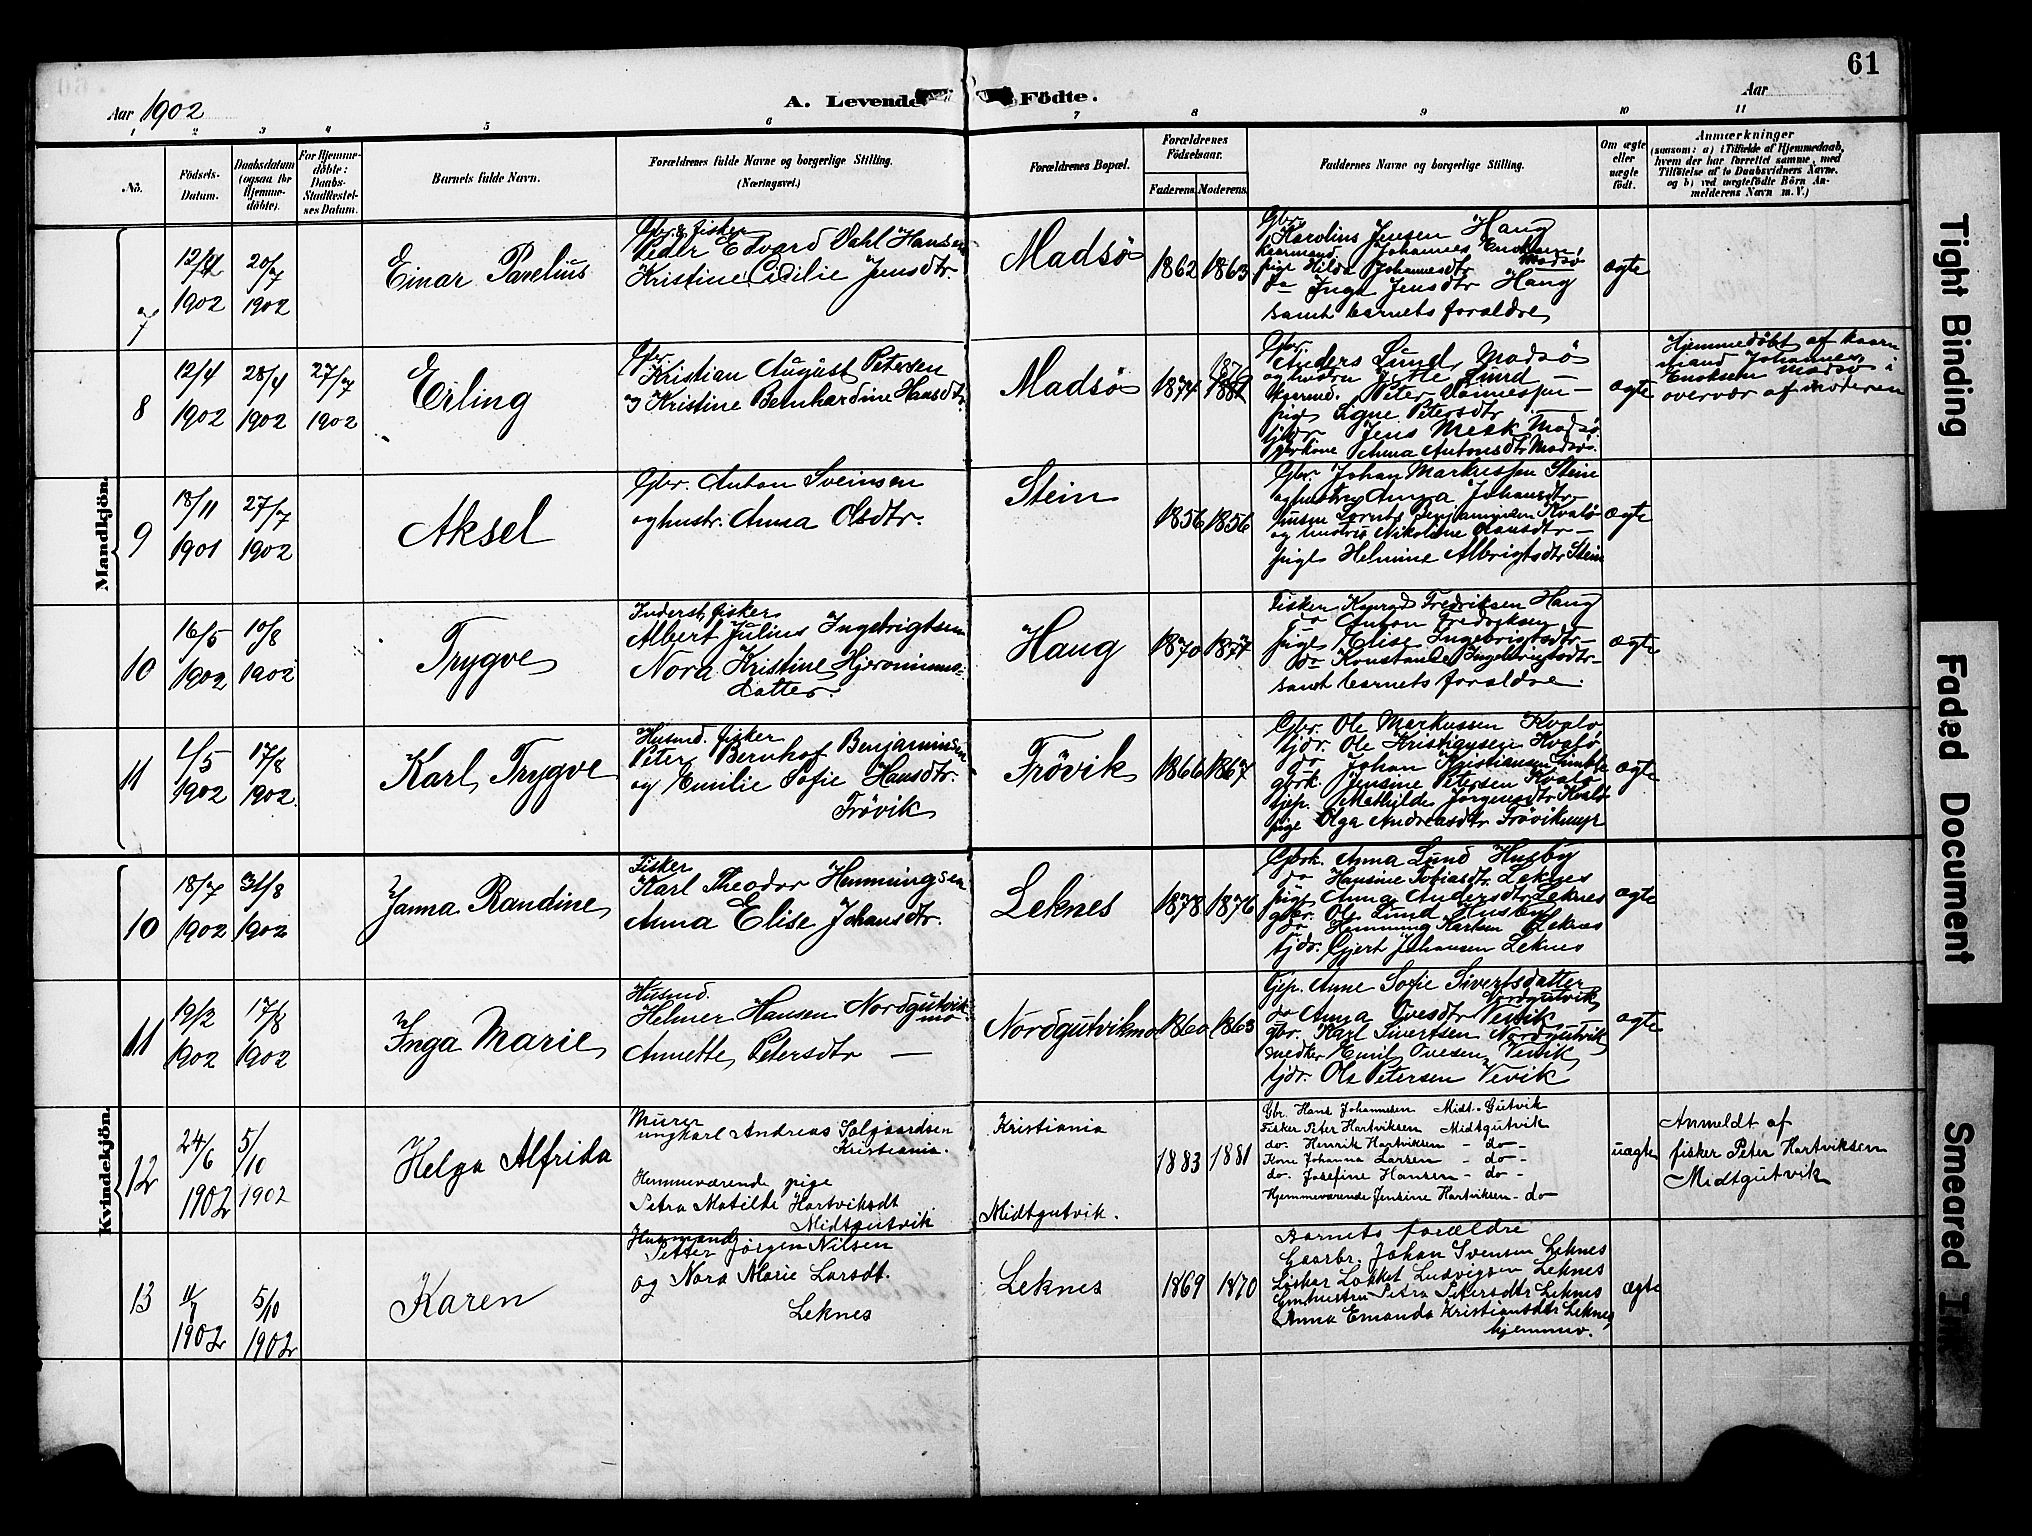 61
Aar 1902
A. Levende Födte.
Aar
1 2 3 4 5 6 7 8 9 10 11
No.
Födsels-Datum.
Daabsdatum (ogsaa for Hjemme-döbte).
For Hjemme-döbte: Daabs-Stadfæstel-ses Datum.
Barnets fulde Navn.
Forældrenes fulde Navne og borgerlige Stilling.
(Næringsvei.)
Forældrenes Bopæl.
Forældrenes Födselsaar.
Faderens. Moderens.
Faddernes Navne og borgerlige Stilling.
Om ægte eller uægte födt.
Anmærkninger
(saasom: a) i Tilfælde af Hjemmedaab,
hvem der har forrettet samme, med
Tilföielse af to Daabsvidners Navne,
og b) ved uægtefödte Börn An-
melderens Navn m. V.)
Mandkjön.
7
12/4 1902
20/7 1902
Einar Pavelius
Gbr. & fisker
Peder Edvard Dahl Hansen
Kristine Cecilie Jensdtr.
Madsö
1862 1863
Gbr.
Karolius Jensen Haug
Kaarmand Johannes Enoksen Madsö
pige Hilda Johannesdtr
do Inga Jensdtr Haug
samt barnets foraldre
ægte
8
12/4 1902
28/4 1902
27/7 1902
Erling
Gbr.
Kristian August Petersen
og Kristine Bernhardine Hansdtr.
Madsö
1874
Gbr.
Anders Lund Madsö
og hustru Jette Lund
pige Agne Petersdtr
Jens Mesk Madsö
gbrkone Anna Antonsdtr Madsö.
ægte
Hjemmedöbt af kaar
mand Johannes
Enoksen Madsö i
overvær af moderen
9
18/11 1901
27/7 1902
Aksel
Gbr. Anton Sveinsen
og hustr. Anna Olsdtr.
Stein
1856 1856
Gbr. Johan Markussen Stein
og hustru Anna Johansdtr
Lornts Benjaminsen Kvalö
og hustru Nikoline Hansdtr —
pige Helmine Albrigtsdtr Stein
ægte
10
16/5 1902
10/8 1902
Trygve
Inderst, fisker
Albert Julius Ingebrigtsen
Nora Kristine Hjeronimus-
datter.
Haug
1870 1877
Fisker Konrad Fredriksen Haug
do Anton Fredriksen
pige Elise Ingebrigtsdtr —
do Konstanse Ingebrigtsdtr —
samt barnets foraldre.
ægte
11
1/5 1902
17/8 1902.
Karl Trygve
Husmd. fisker
Peter Bernhof Benjaminsen
og Emilie Sofie Hansdtr.
Frövik
Frövik
1866 1867
Gbr. Ole Markussen Kvalö
tjdr. Ole Kristiansen Kvalö
do Johan Kristiansen
gbrk. Jensine Petersen Kvalö
tjp. Mathilde Jörgensdtr Kvalö
pige Olga Andreasdtr Frövikmyr
ægte
Kvindekjön.
10
18/7 1902
31/8 1902
Janna Randine
Fisker
Karl Theodor Hemmingsen
Anna Elise Johansdtr.
Leknes
1878 1876
Gbrk. Anna Lund Husby
do Hansine Tobiasdtr. Leknes
pige Anna Andersdtr Leknes
gbr. Ole Lund Husby
do Hemming Karlsen Leknes
tjdr. Gjert Johansen Leknes
ægte
11
19/2 1902
17/8 1902
Inga Marie
Husmd.
Helmer Hansen Nordgutvik-
mo
Annette Petersdtr —
Nordgutvikmo
1860 1863
Tjp. Anne Sofie Sivertsdatter
Nordgutvik
do Anna Ovesdtr Vevik
gbr. Karl Sivertsen Nordgutvik
snedker Emil Ovesen Vevik
tjdr. Ole Petersen Vevik
ægte
12
24/6 1902
5/10 1902
Helga Alfrida
Murer
ungkarl Andreas Solgaardsen
Kristiania.
Hemmeværende pige
Petra Matilde Hartviksdt
Midtgutvik
Kristiania
Midtgutvik.
1883 1881
Gbr. Hans Johannesen Midt-Gutvik
Fisker Peter Hartviksen Midtgutvik
do. Henrik Hartviksen - do -
Kone Johanna Larsen - do -
do. Josefine Hansen - do -
Hjemmeværende Jensine Hartviksen - do
uægte
Anmeldt af
fisker Peter Hartviksen
Midtgutvik
13
11/7 1902
5/10 1902
Karen
Husmand
Petter Jörgen Nilsen
og Nora Marie Larsdt.
Leknes
Leknes
1869 1870
Barnets forældre
Gaarbr. Johan Svensen Leknes
Löskar Lokket Ludvigsen Leknes
Gmhustru Petra Petersdtr Leknes
Anna Emanda Kristiansdtr Leknes,
hjemmev.
ægte
Tight Binding
Faded Document
Smeared Ink